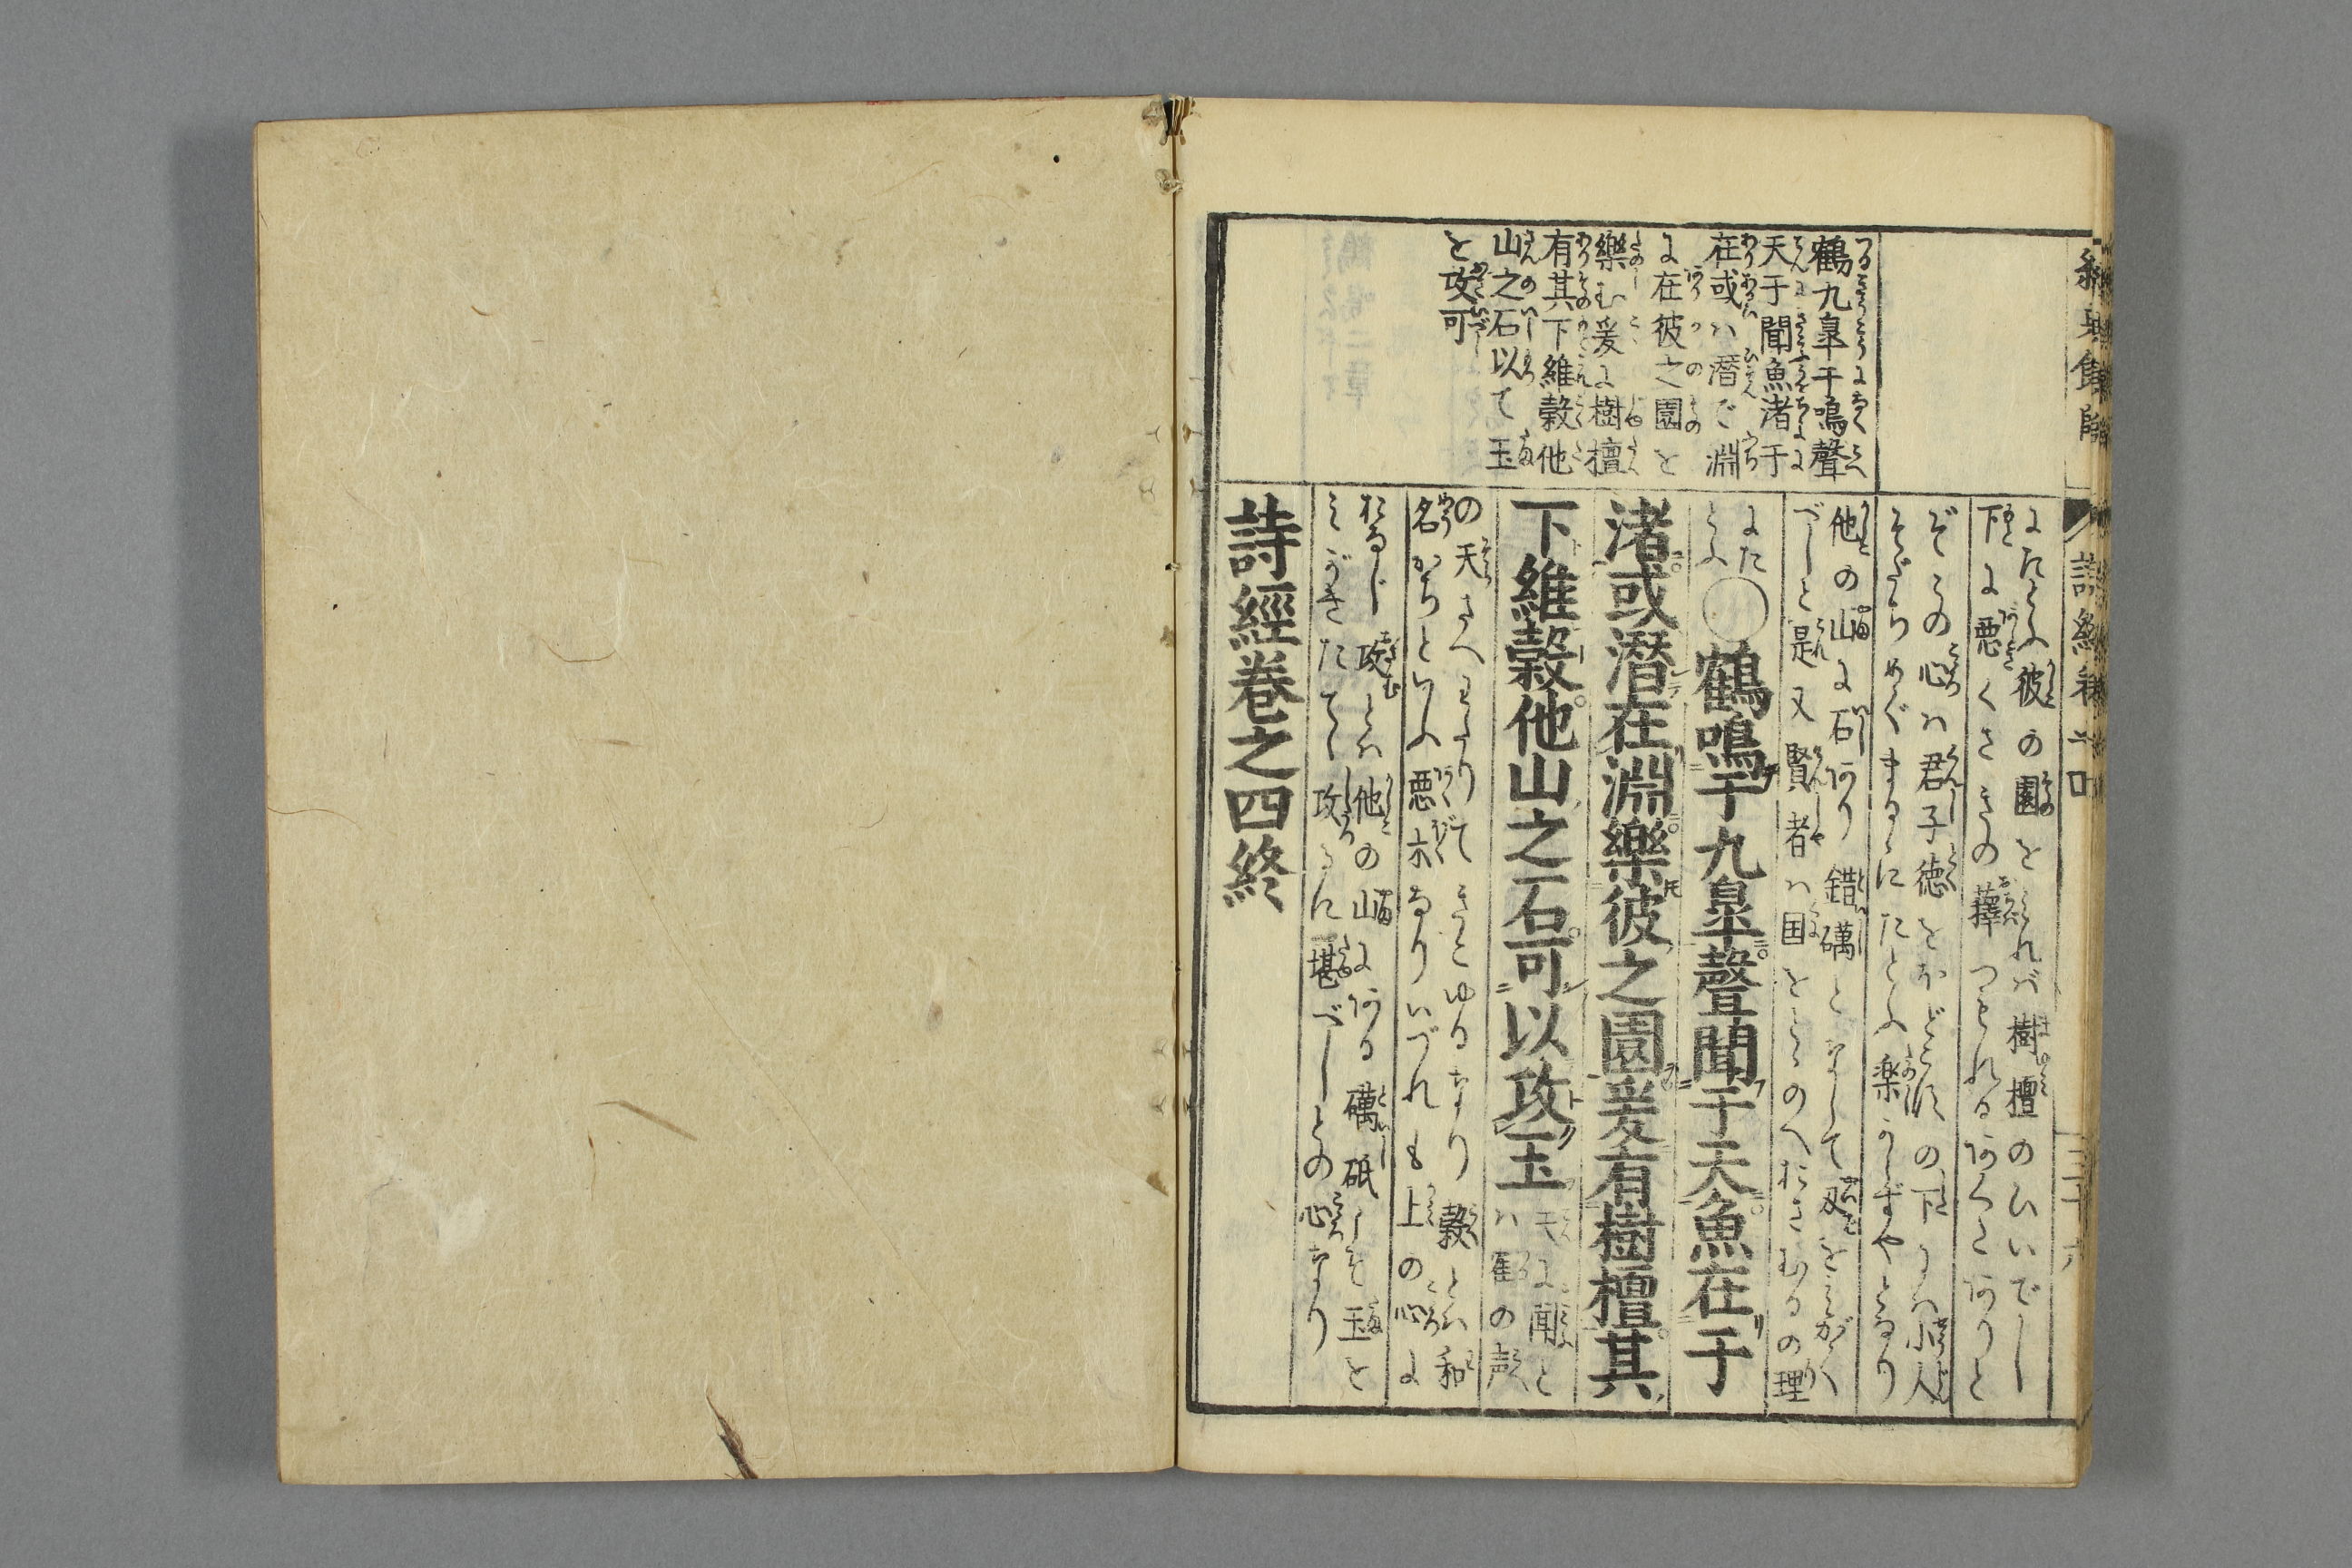 鶴九皐于鳴聲
天于聞魚渚于
在或ハ潜で淵
に在彼之園を
樂む爰に樹檀
有其下維榖他
山之石以て玉
を攻可
にたとふ彼の園をみれバ樹檀のひいでし
下に悪くさきの蘀つもれるあくたありと
ぞその心ハ君子徳をほどこすの下にハ小人
他の山に石あり錯礪となして刃をみがく
べしと是又賢者ハ国をとゝのへおさむるの理
にた
とふ
○鶴鳴于九皐聲聞于天魚在于
渚或潜在淵樂彼之園爰有樹檀其
下維榖他山之石可以攻玉
天に聞と
ハ靏の声
の天さへわたりてきこゆるなり榖とハ和
名かぢといふ悪木なりいづれも上の心に
おなじ攻とハ他の山にある礪砥しを玉を
みがきたてゝ攻るに堪べしとの心なり
詩經巻之四終